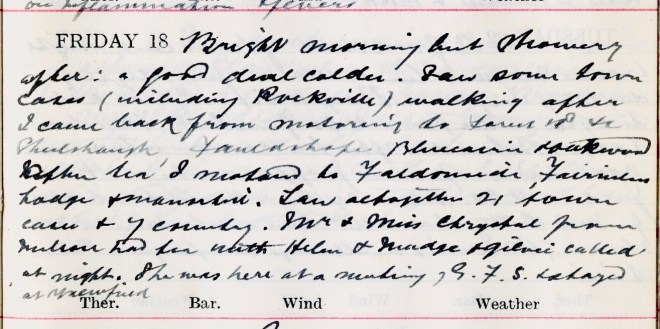 on Inflammation Fevers
FRIDAY 18 Bright morning but showery
after: a good deal colder. Saw some town
cases (including Rockville) walking after
I came back from motoring to
Fauldshope, Oakwood
After tea I motored to Faldonside, Fairnilee
Lodge & manortoil. Saw altogether 21 town
cases & 7 country. Mr & Miss Chrystal from
Melrose had tea with Helen & Madge Ogilvie called
at night. She was here at a meeting of G. F. S. & stayed
at
Ther. Bar. Wind Weather